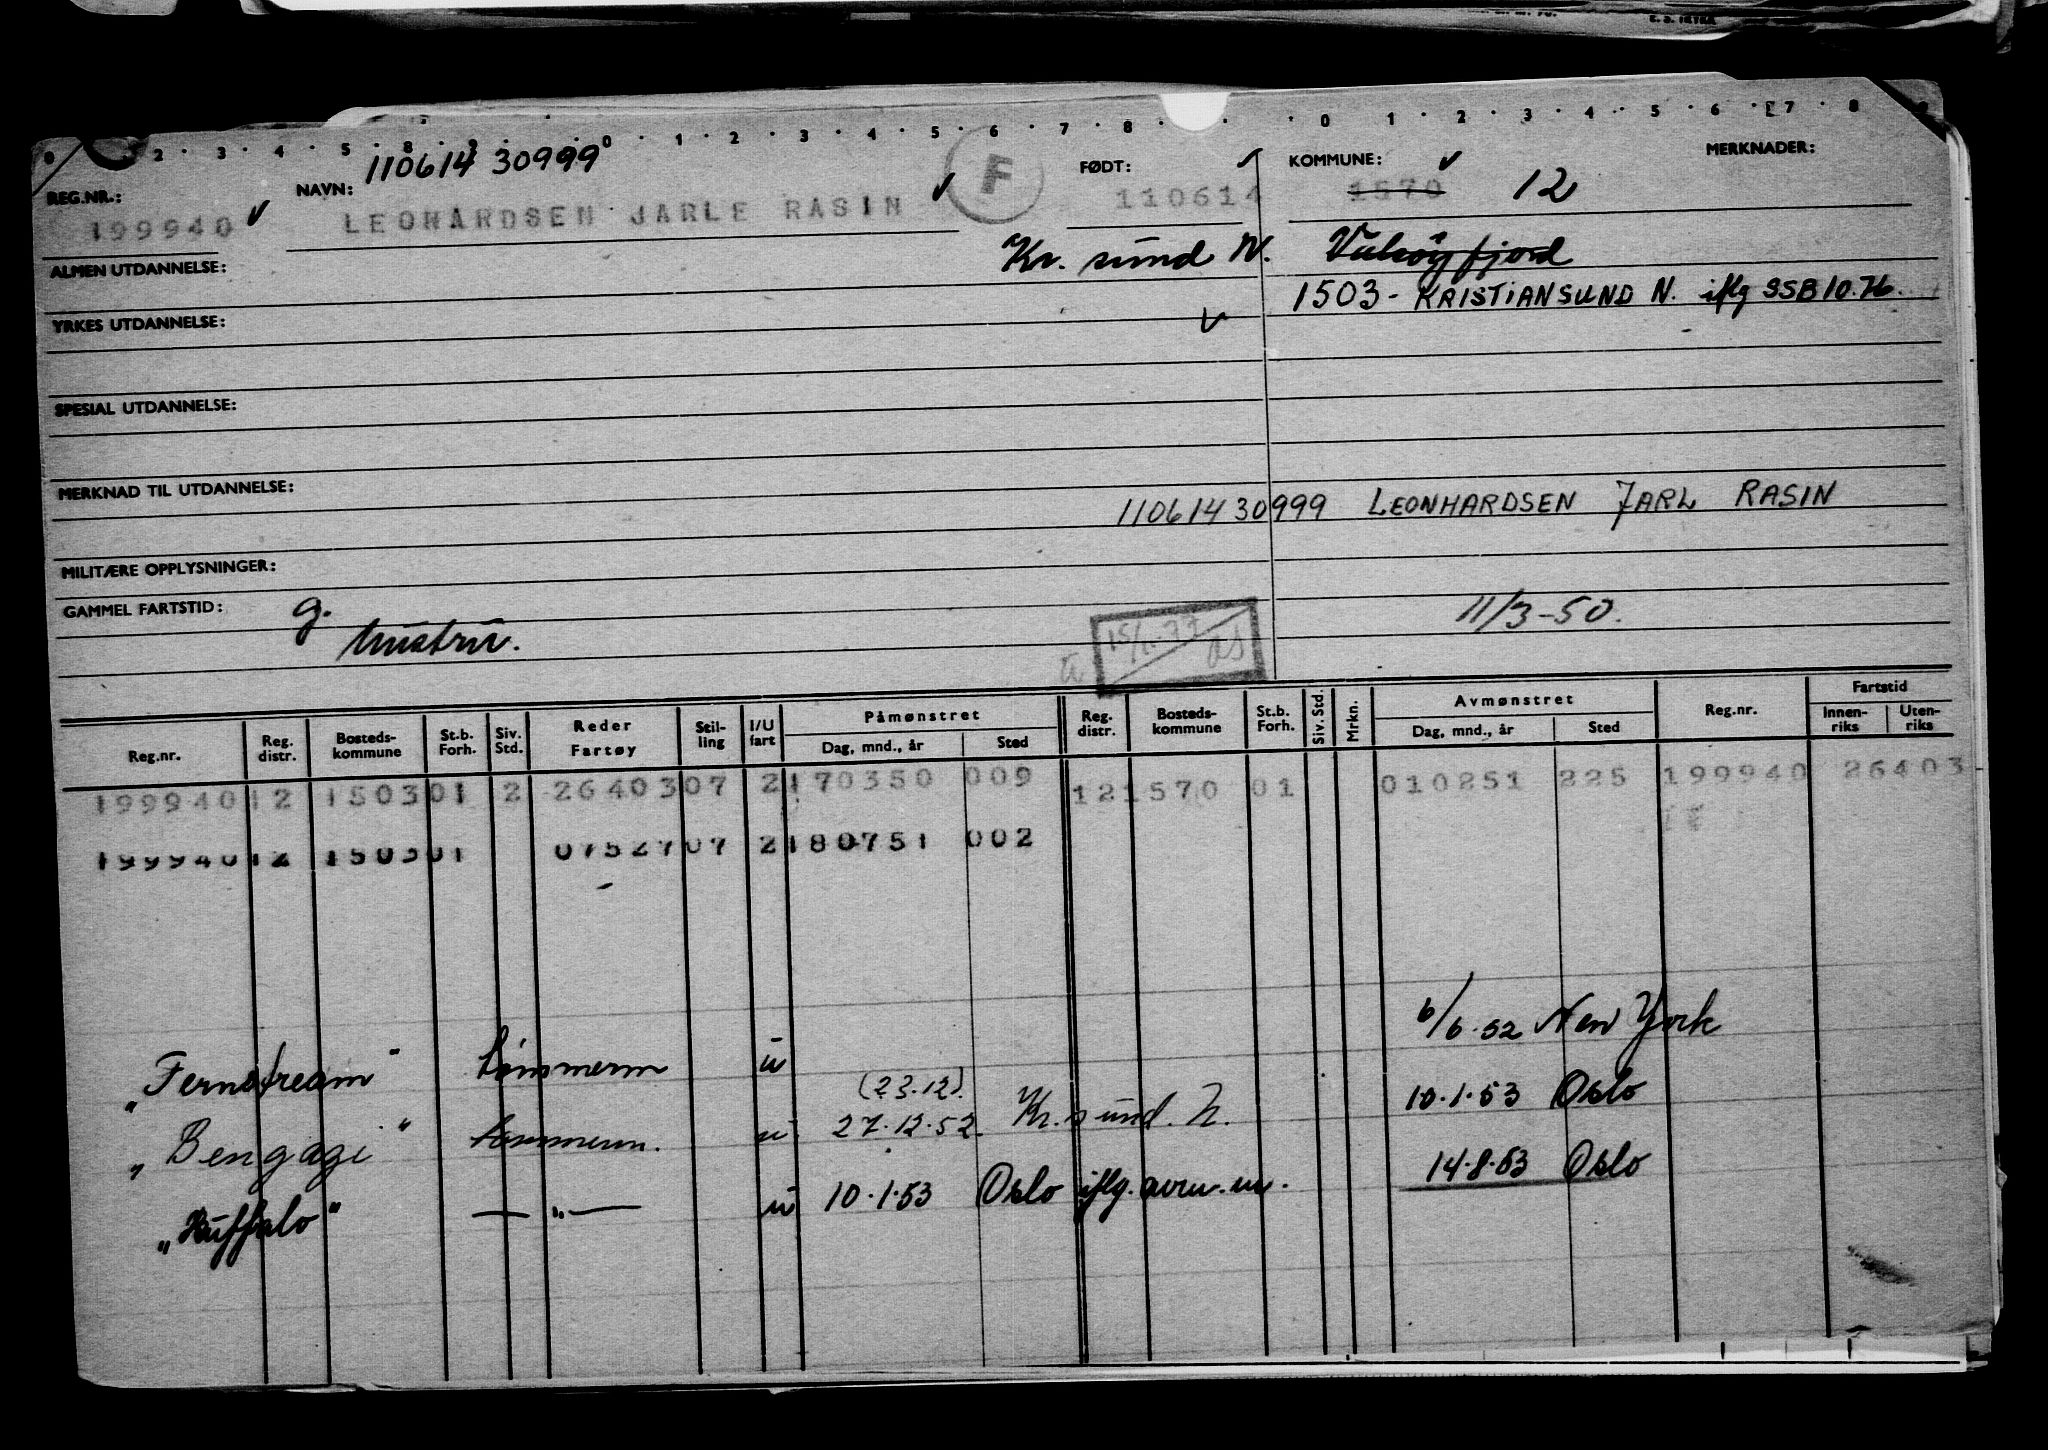 0 2 · 3 · 4 · 5 · 8 · 9 · 0 · 1 · 2 · 3 · 4 · 5 · 6 · 7 · 8 · · 0 · 1 · 2 · 3 · 4 · 5 · 6 · 7 · 8
110614 30999
REG.NR.: NAVN: F FØDT: KOMMUNE: MERKNADER:
199940 LEONARDSEN JARLE RASIN 110614 1570 12
ALMEN UTDANNELSE: Kr. sund N.
1503 - KRISTIANSUND N. iflg SSB 10.76.
YRKES UTDANNELSE:
SPESIAL UTDANNELSE:
MERKNAD TIL UTDANNELSE:
110614 30999 LEONHARDSEN JARL RASIN
MILITÆRE OPPLYSNINGER:
GAMMEL FARTSTID: g. 11/3-50.
hustru.
Reg.nr. Reg. distr. Bosteds-kommune St.b. Forh. Siv. Std. Reder Fartøy Stil-ling I/U fart Påmønstret Dag, mnd., år Sted Reg. distr. Bosteds-kommune St.b. Forh. Siv. Std. Mrkn. Avmønstret Dag, mnd., år Sted Reg.nr. Fartstid Innen-riks Uten-riks
199940 12 1503 01 2 26403 07 2 170350 009 12 1570 01 010251 225 199940 26403
199940 12 1503 01 07527 07 2 180751 002
"Fernstream" tømmerm u 6/6.52 New York
(23.12).
"Bengazi" tømmerm. u 27.12.52. Kr.sund. N. 10.1.53 Oslo
"Buffalo" — " — u 10.1.53 Oslo iflg. avm. m. 14.8.53 Oslo